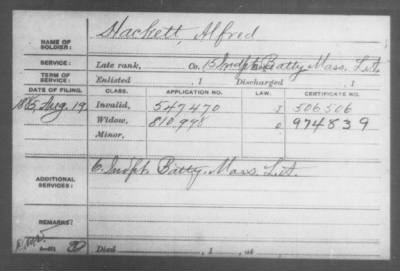 NAME OF SOLDIER: Hackett, Alfred
SERVICE: Late rank, Co. 15 Indpt Batty Mass. L.A.
TERM OF SERVICE: Enlisted 1 Discharged 1
DATE OF FILING. CLASS. APPLICATION NO. LAW. CERTIFICATE NO.
1885, Aug. 19 Invalid, 547470 J 506506
Widow, 810,998 O 974839
Minor,
ADDITIONAL SERVICES: 6. Indpt Batty. Mass. L.A.
REMARKS:
Died , 1 , at